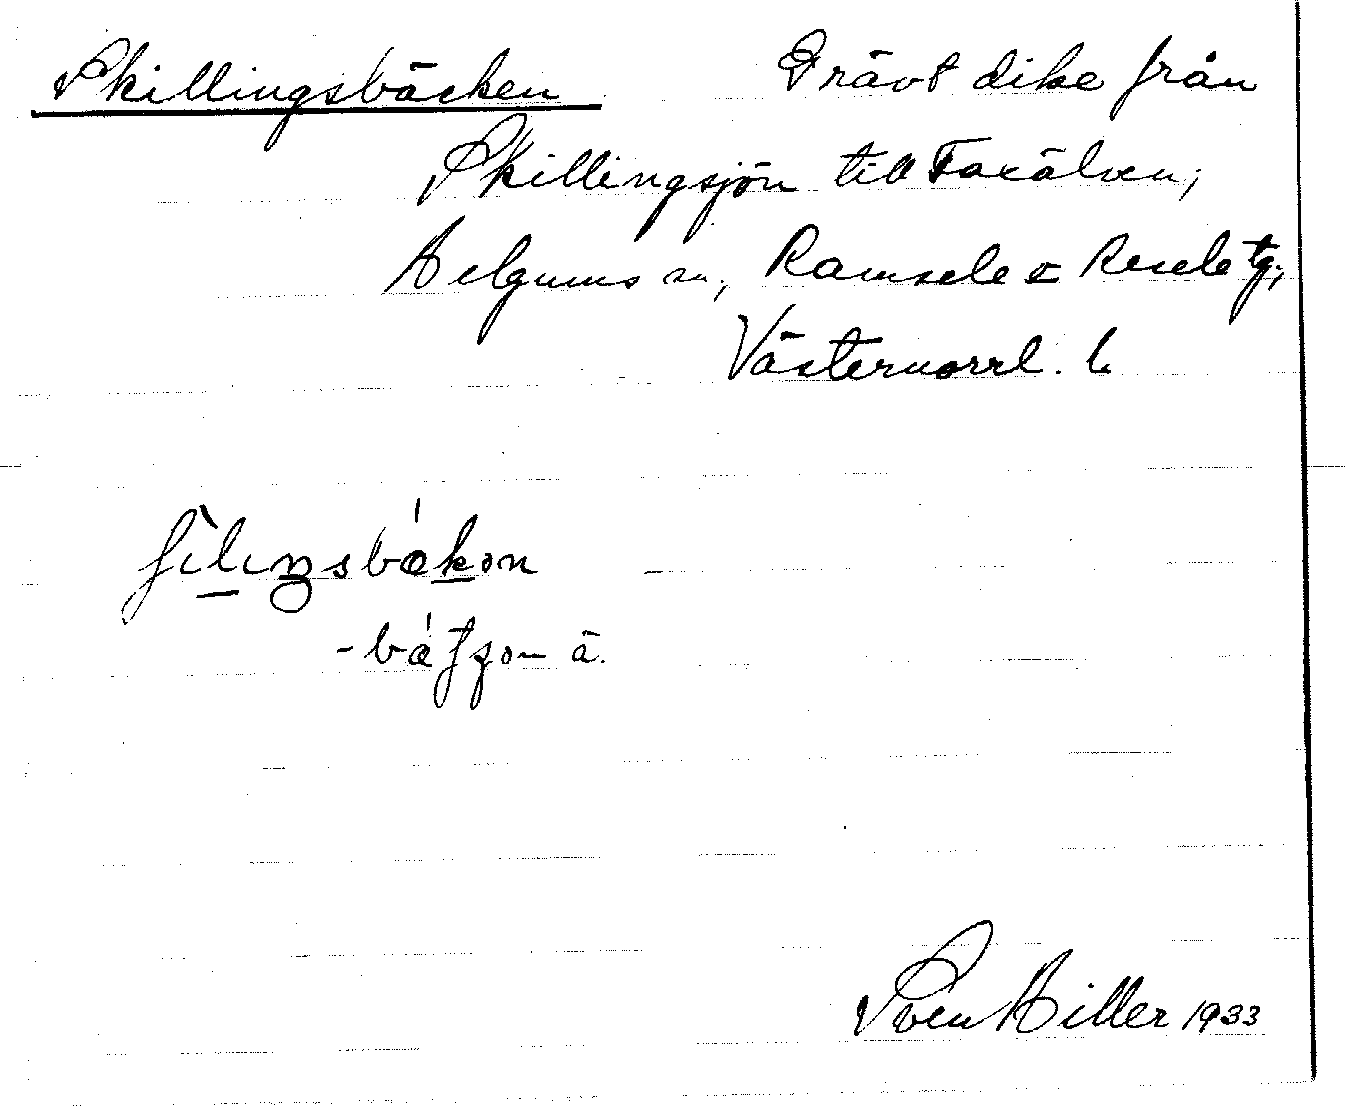 Skillingsbäcken Grävt dike från
Skillingsjön till Faxälven,
Helgums sn, Ramsele o Resele tg,
Västernorrl. l.
ʃìlıŋsbǽkən
-bǽtʃən ä.
Sven Hiller 1933